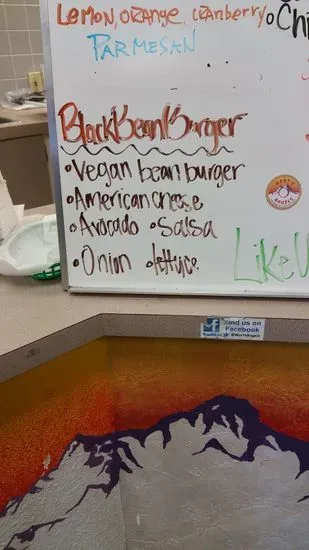 Lemon, orange, cranberry
• Chi
PARMESAN
Black Bean Burger
• Vegan bean burger
• American cheese
• Avocado • Salsa
• Onion • lettuce
Like U
Find us on
Facebook